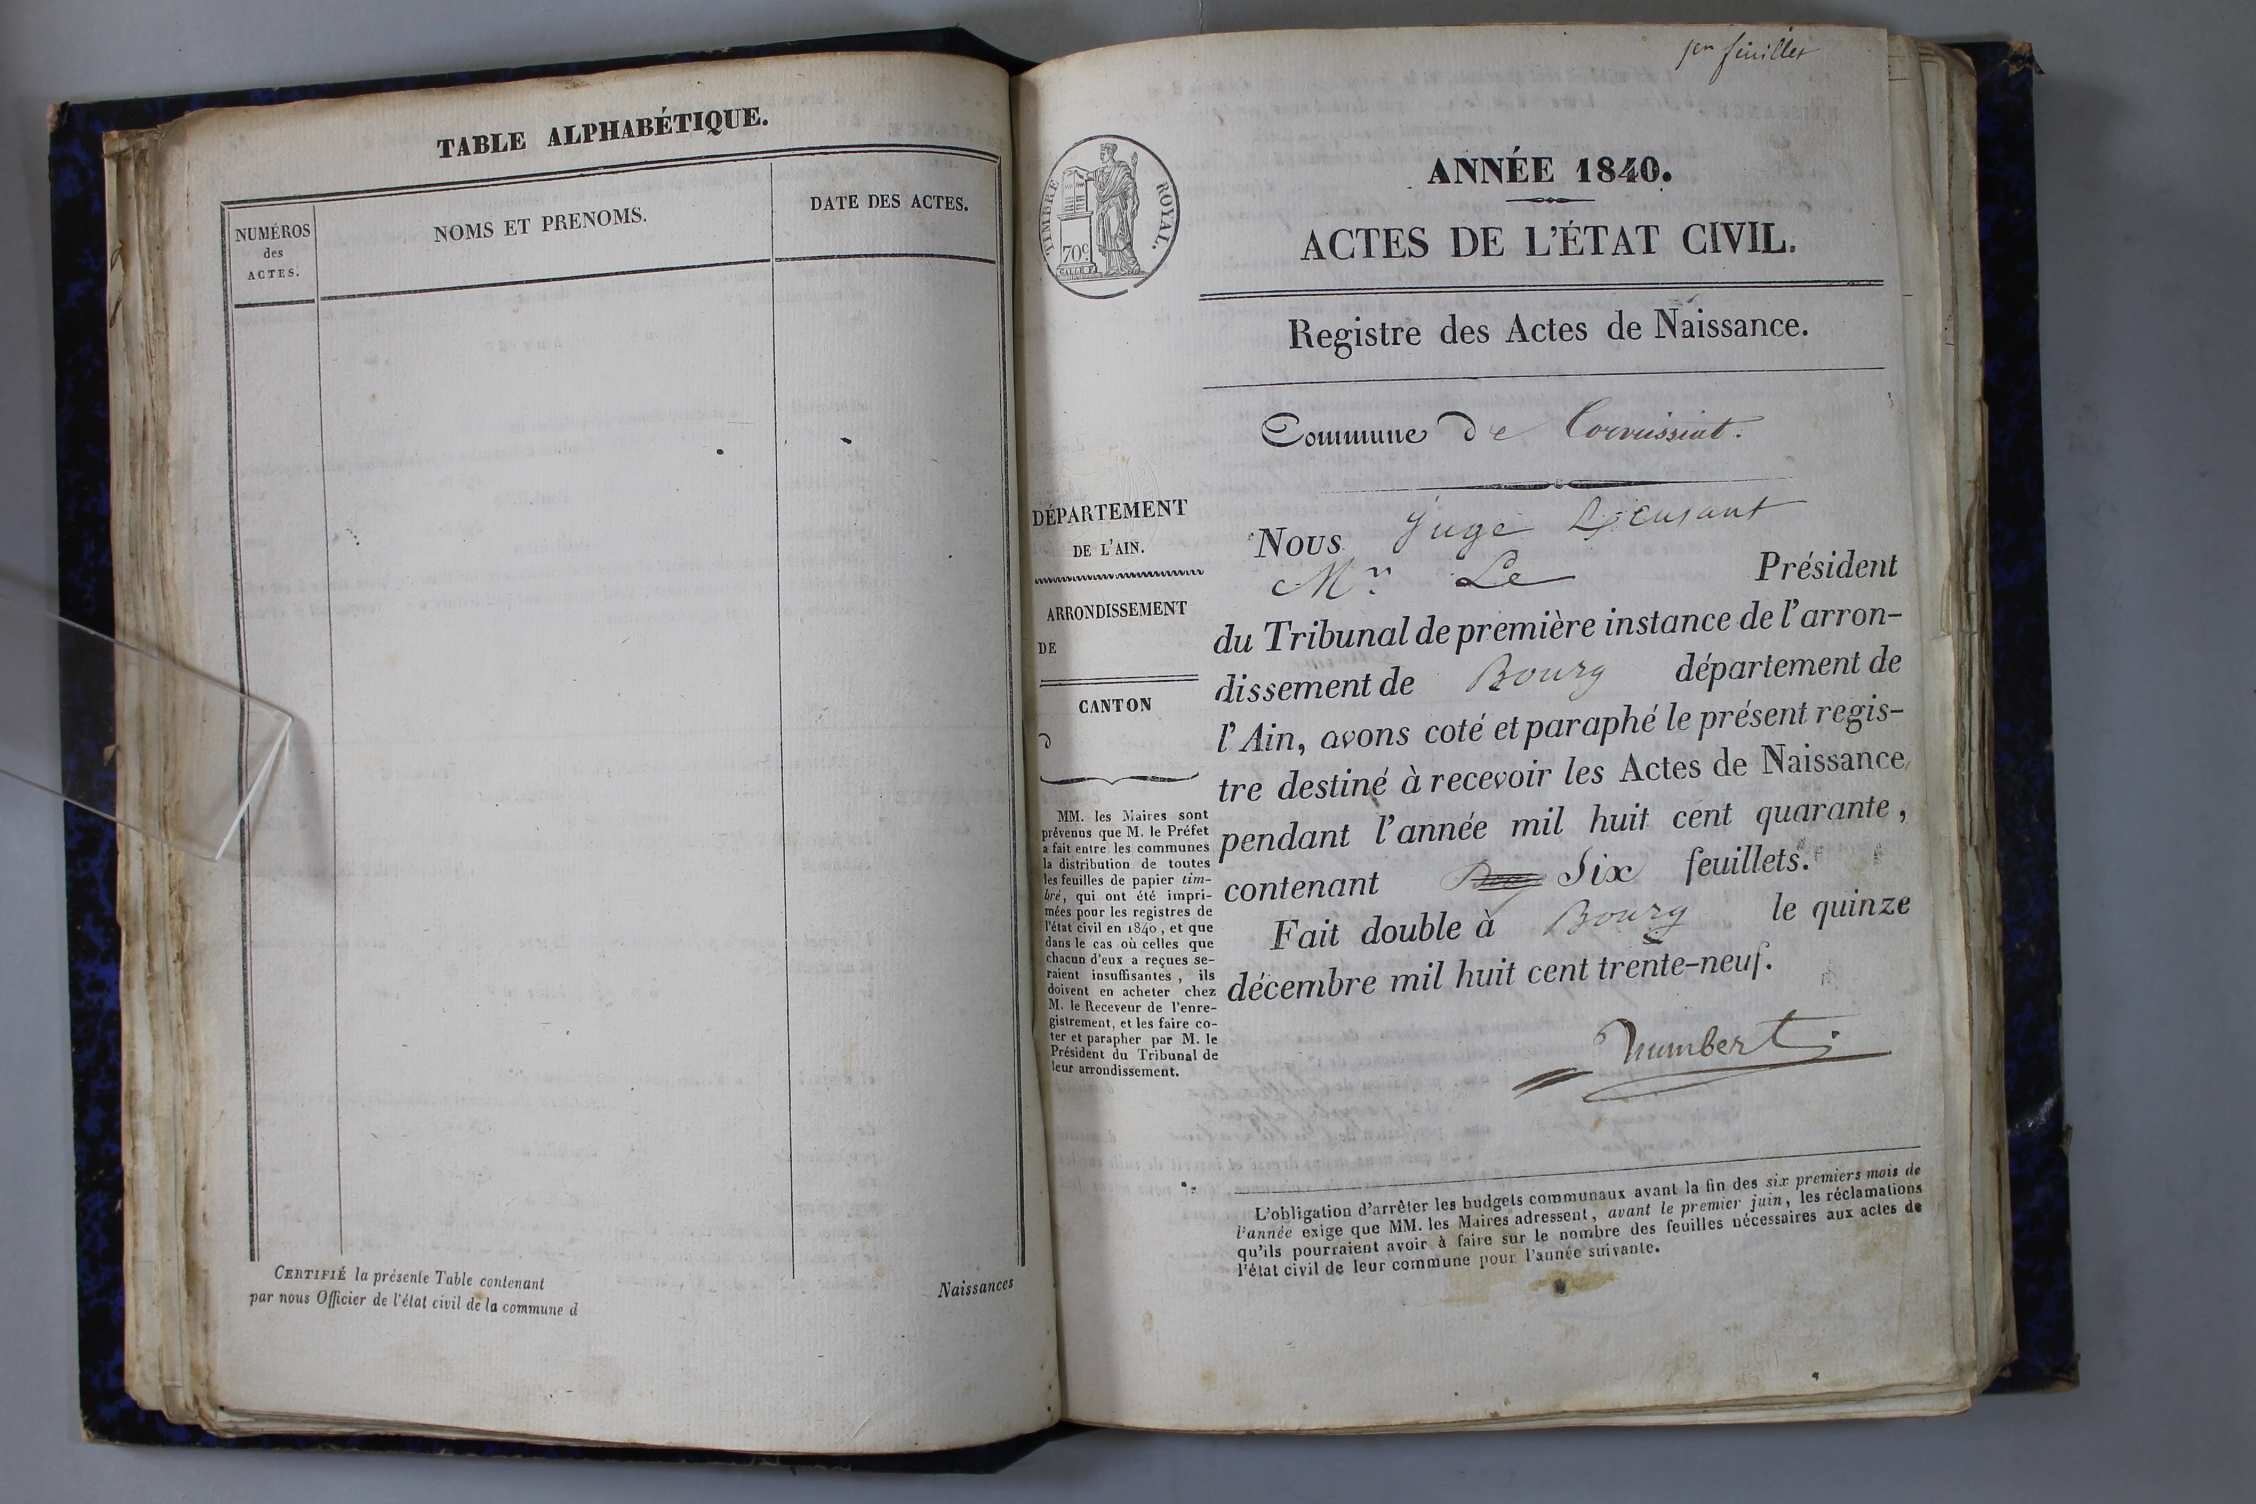 TABLE ALPHABÉTIQUE.
NUMÉROS
des
ACTES.
NOMS ET PRENOMS.
DATE DES ACTES.
CERTIFIÉ la présente Table contenant
par nous Officier de l'état civil de la commune d
Naissances
feuillet
TIMBRE ROYAL.
70c
ANNÉE 1840.
ACTES DE L'ÉTAT CIVIL.
Registre des Actes de Naissance.
Commune de Corveissiat.
DÉPARTEMENT
DE L'AIN.
ARRONDISSEMENT
DE
CANTON
D
MM. les Maires sont
prévenus que M. le Préfet
a fait entre les communes
la distribution de toutes
les feuilles de papier tim-
bré, qui ont été impri-
mées pour les registres de
l'état civil en 1840, et que
dans le cas où celles que
chacun d'eux a reçues se-
raient insuffisantes, ils
doivent en acheter chez
M. le Receveur de l'enre-
gistrement, et les faire co-
ter et parapher par M. le
Président du Tribunal de
leur arrondissement.
Nous Juge
Mr Le Président
du Tribunal de première instance de l'arron-
dissement de Bourg département de
l'Ain, avons coté et paraphé le présent regis-
tre destiné à recevoir les Actes de Naissance
pendant l'année mil huit cent quarante,
contenant Six feuillets.
Fait double à Bourg le quinze
décembre mil huit cent trente-neuf.
humbert
L'obligation d'arrêter les budgets communaux avant la fin des six premiers mois de
l'année exige que MM. les Maires adressent, avant le premier juin, les réclamations
qu'ils pourraient avoir à faire sur le nombre des feuilles nécessaires aux actes de
l'état civil de leur commune pour l'année suivante.